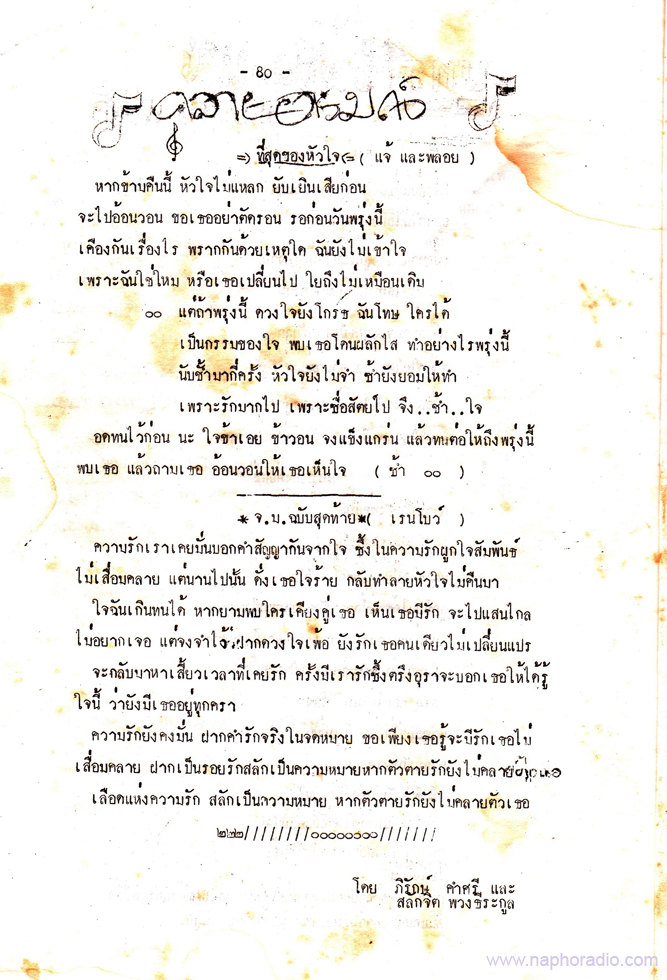 - 80 -
คลายอารมณ์
=) ที่สุดของหัวใจ (= ( แจ้ และพลอย )
หากข้ามคืนนี้ หัวใจไม่แหลก ยับเยินเสียก่อน
จะไปอ้อนวอน ขอเธออย่าตัดรอน รอก่อนวันพรุ่งนี้
เคืองกันเรื่องไร พรากกันด้วยเหตุใด ฉันยังไม่เข้าใจ
เพราะฉันใช่ใหม หรือเธอเปลี่ยนไป ใยถึงไม่เหมือนเดิม
๐๐ แต่ถ้าพรุ่งนี้ ดวงใจยังโกรธ ฉันโทษ ใครได้
เป็นกรรมของใจ พบเธอโดนผลักไส ทำอย่างไรพรุ่งนี้
นับช้ำมากี่ครั้ง หัวใจยังไม่จำ ซ้ำยังยอมให้ทำ
เพราะรักมากไป เพราะซื่อสัตย์ไป จึง..ช้ำ..ใจ
อดทนไว้ก่อน นะ ใจช้าเอย ข้าวอน จงแข็งแกร่น แล้วทนต่อให้ถึงพรุ่งนี้
พบเธอ แล้วถามเธอ อ้อนวอนให้เธอเห็นใจ ( ซ้ำ ๐๐ )
* จ.ม.ฉบับสุดท้าย * ( เรนโบว์ )
ความรักเราเคยมั่นบอกคำสัญญากันจากใจ ซึ้งในความรักผูกใจสัมพันธ์
ไม่เสื่อมคลาย แต่นานไปนั้น ดั่งเธอใจร้าย กลับทำลายหัวใจไม่คืนมา
ใจฉันเกินทนได้ หากยามพบใครเคียงคู่เธอ เห็นเธอมีรัก จะไปแสนไกล
ไม่อยากเจอ แต่จงจำไว้ ฝากดวงใจเพ้อ ยังรักเธอคนเดียวไม่เปลี่ยนแปร
จะกลับมาหาเสี้ยวเวลาที่เคยรัก ครั้งมีเรารักซึ้งตรึงอุราจะบอกเธอให้ได้รู้
ใจนี้ ว่ายังมีเธออยู่ทุกครา
ความรักยังคงมั่น ฝากคำรักจริงในจดหมาย ขอเพียงเธอรู้จะมีรักเธอไม่
เสื่อมคลาย ฝากเป็นรอยรักสลักเป็นความหมายหากตัวตายรักยังไม่คลาย
เลือดแห่งความรัก สลักเป็นความหมาย หากตัวตายรักยังไม่คลายตัวเธอ
๒๒๒////////๐๐๐๐๐๐๐๐///////
โดย ภิรักษ์ คำศรี และ
สลักจิต พวงธีระกูล
www.naphoradio.com